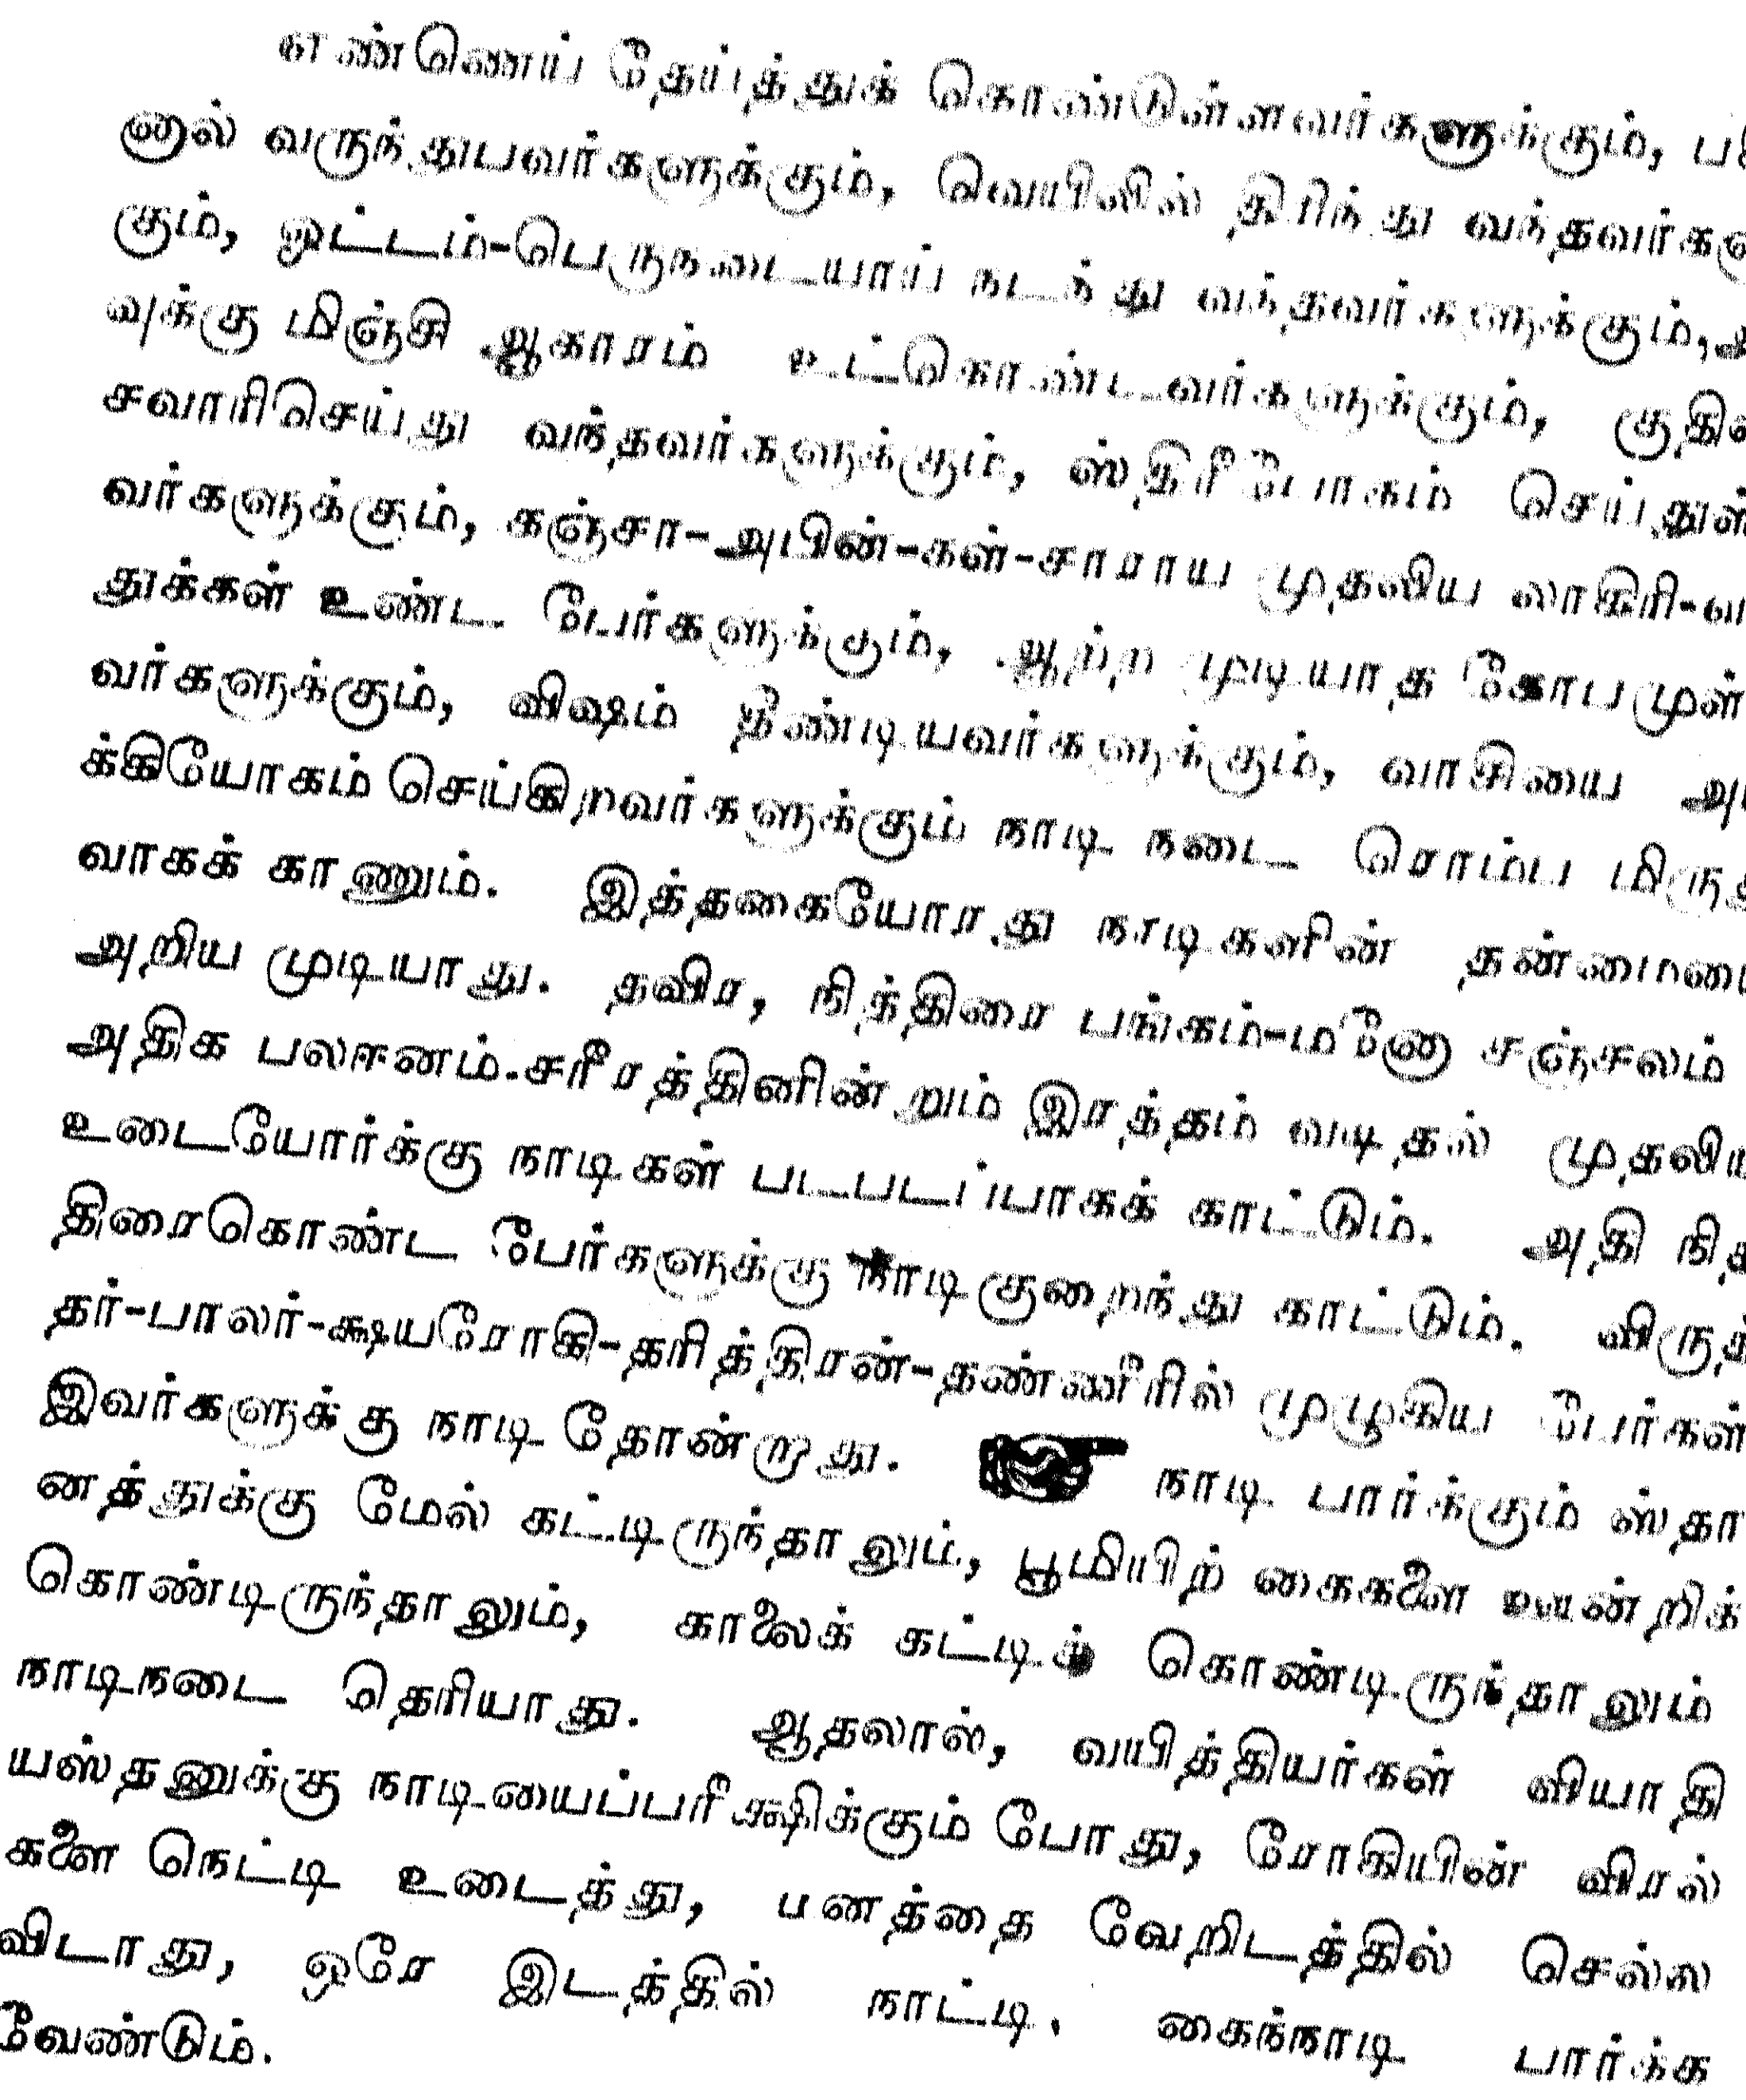 எண்ணெய் தேய்த்துக் கொண்டுள்ளவர்களுக்கும்,
னால் வருந்துபவர்களுக்கும், வெயிலில் திரிந்து வந்தவர்களு
கும், ஓட்டம்-பெருநடையாய் நடந்து வந்தவர்களுக்கும், அ
வுக்கு மிஞ்சி ஆகாரம் உட்கொண்டவர்களுக்கும், குதிரை
சவாரிசெய்து வந்தவர்களுக்கும், ஸ்திரீபோகம் செய்துள்
வர்களுக்கும், கஞ்சா-அபின்-கள்-சாராய முதலிய லாகிரி-வ
துக்கள் உண்ட பேர்களுக்கும், ஆற்ற முடியாத கோபமுள்
வர்களுக்கும், விஷம் தீண்டியவர்களுக்கும், வாசியை அ
க்கியோகம் செய்கிறவர்களுக்கும் நாடி நடை ரொம்ப மிருது
வாகக் காணும். இத்தகையோரது நாடிகளின் தன்மையை
அறிய முடியாது. தவிர, நித்திரை பங்கம்-மனோ சஞ்சலம்
அதிக பலஈனம்-சரீரத்தினின்றும் இரத்தம் வடிதல் முதலிய
உடையோர்க்கு நாடிகள் படபடப்பாகக் காட்டும். அதி நித்
திரைகொண்ட பேர்களுக்கு நாடி குறைந்து காட்டும். விருத்
தர்-பாலர்-க்ஷயரோகி-தரித்திரன்-தண்ணீரில் முழுகிய பேர்கள்
இவர்களுக்கு நாடி தோன்றாது. ☞ நாடி பார்க்கும் ஸ்தா
னத்துக்கு மேல் கட்டிருந்தாலும், பூமியிற் கைகளை ஊன்றிக்
கொண்டிருந்தாலும், காலைக் கட்டிக் கொண்டிருந்தாலும்
நாடிநடை தெரியாது. ஆதலால், வயித்தியர்கள் வியாதி
யஸ்தனுக்கு நாடியைப்பரீக்ஷிக்கும் போது, ரோகியின் விரல்
களை நெட்டி உடைத்து, மனத்தை வேறிடத்தில் செல்ல
விடாது, ஒரே இடத்தில் நாட்டி, கைந்நாடி பார்க்க
வேண்டும்.